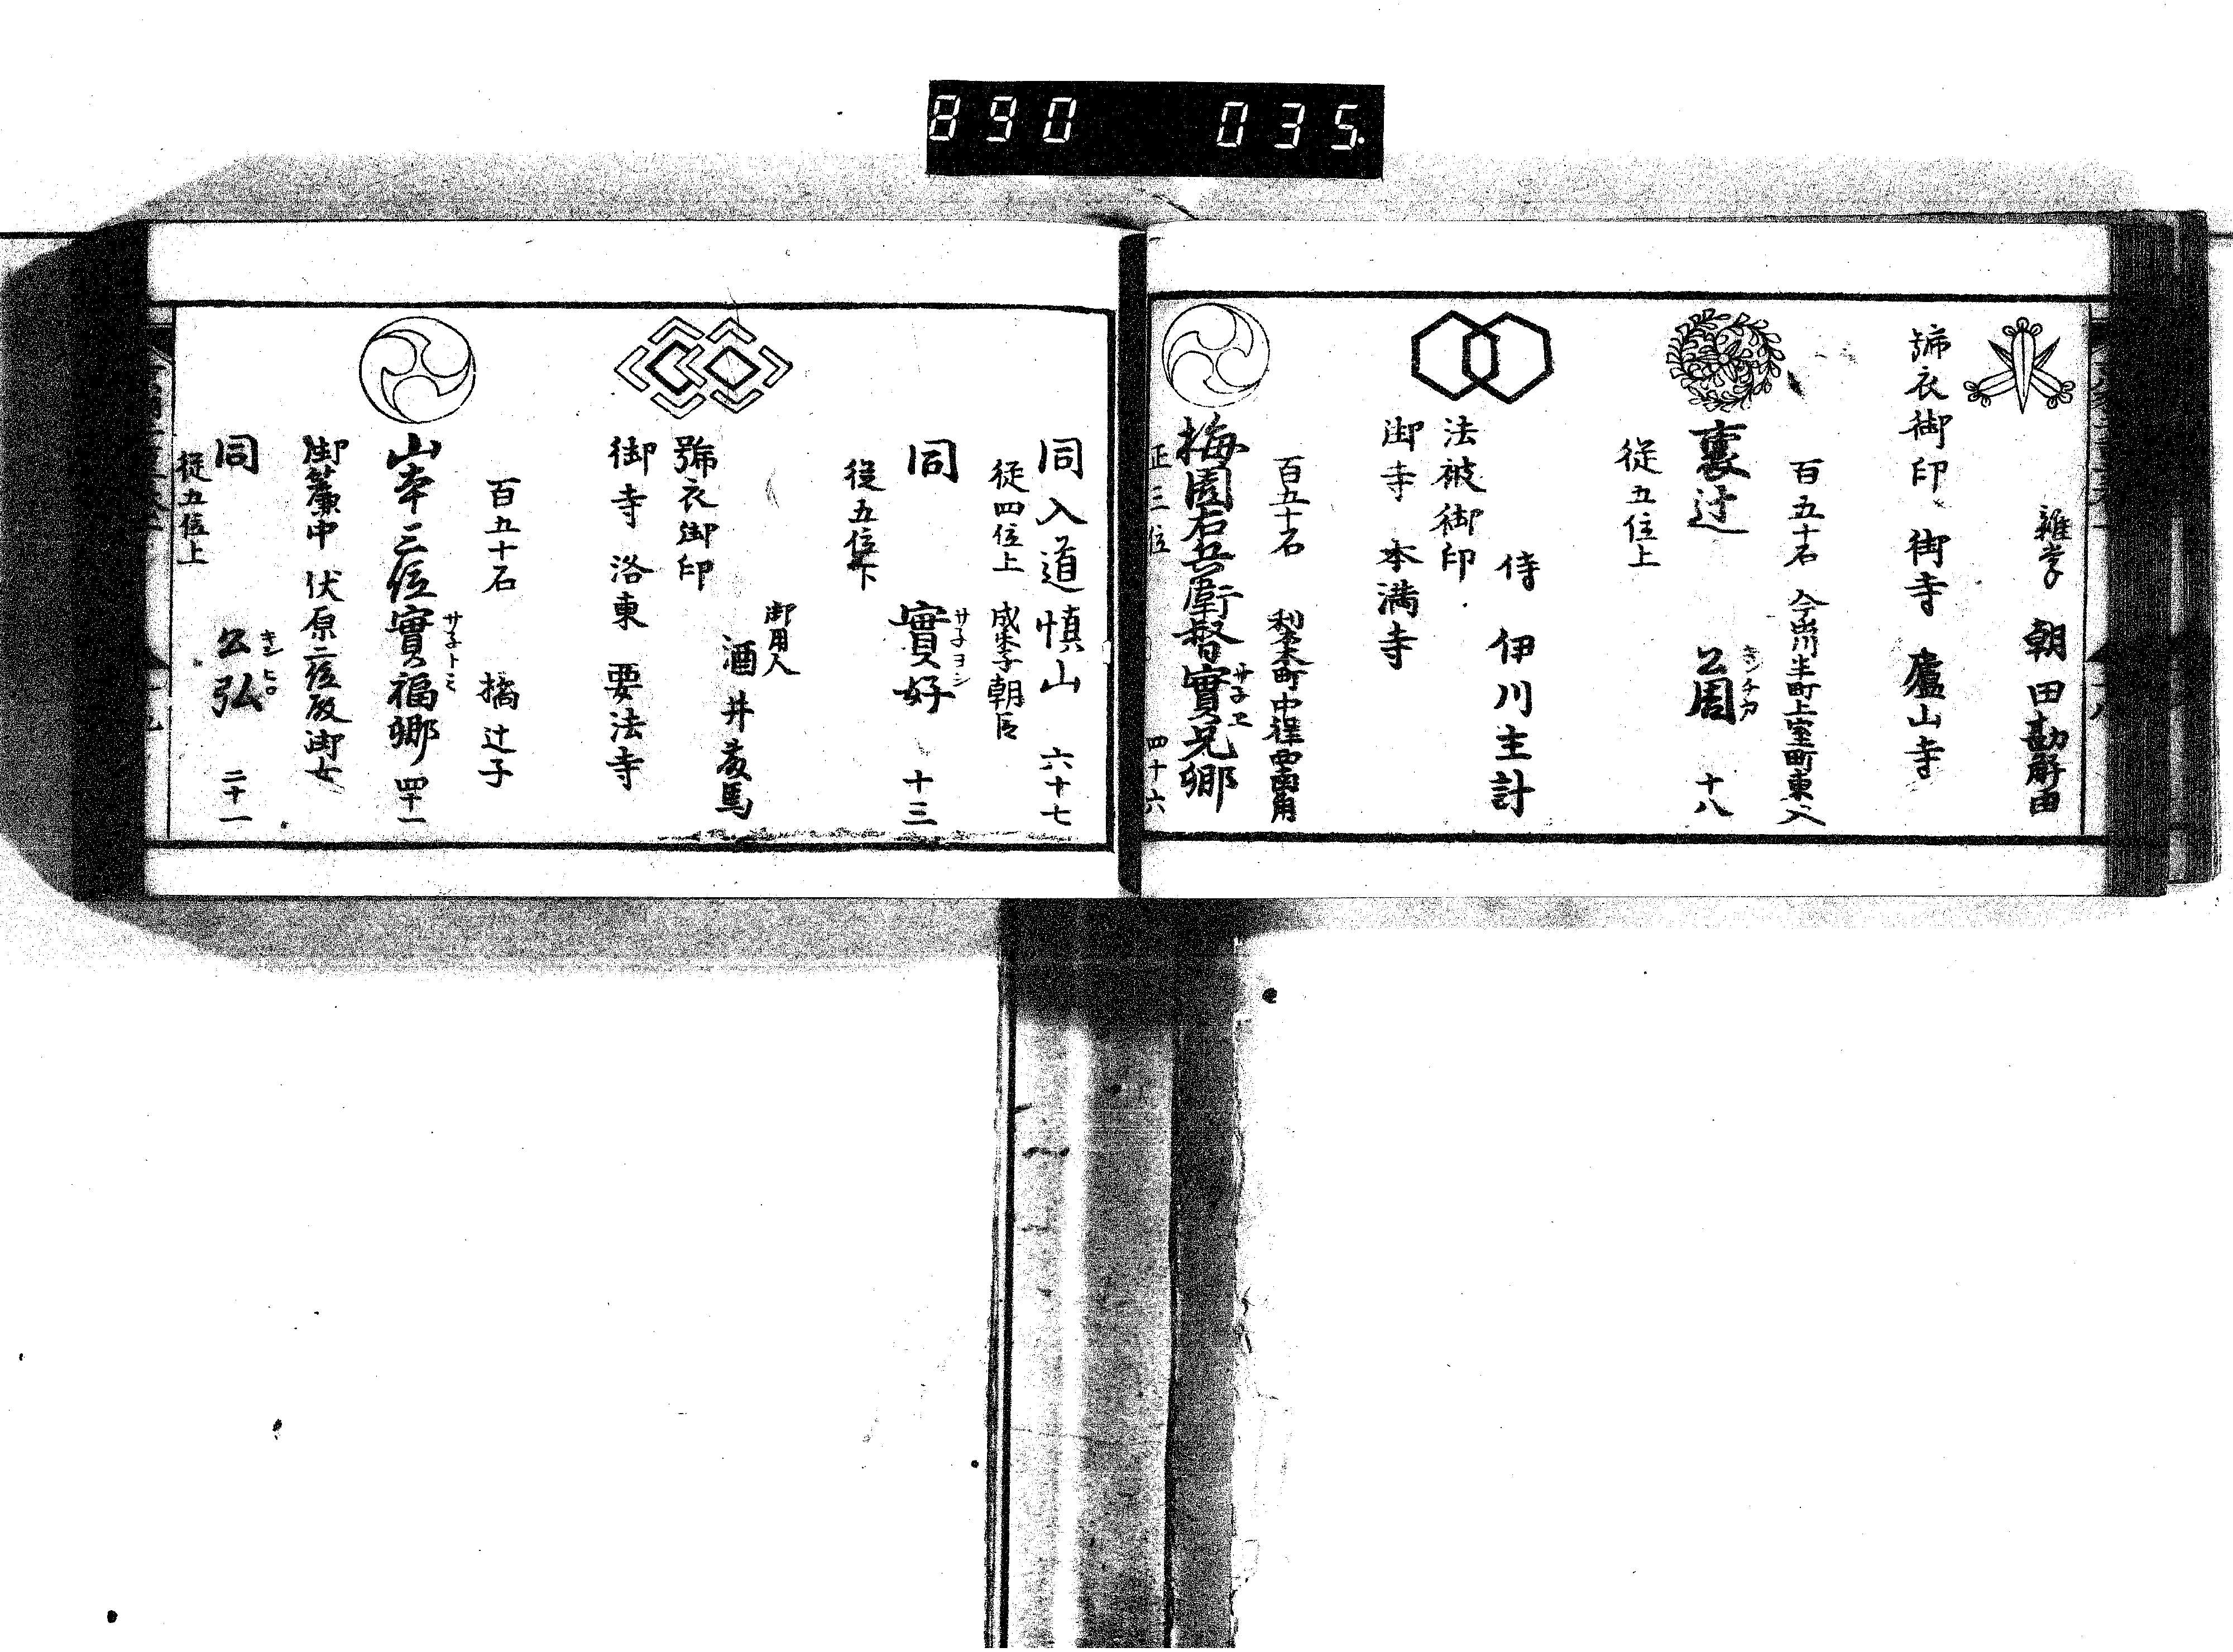 890 035.
雜掌 朝田勘解由
號衣御印 御寺 廬山寺
百五十石 今出川半町上室町東入
裏辻 公周 キンチカ 十八
從五位上
侍 伊川主計
法被御印
御寺 本満寺
百五十石 梨木町中程西南角
梅園右兵衛督實兄卿 サネエ
正三位 四十六
同入道慎山 六十七
從四位上 成季朝臣
同 實好 サネヨシ 十三
從五位下
御用人
酒井
號衣御印
御寺 洛東 要法寺
百五十石 橘辻子
山本三位實福卿 サネトミ 四十一
御簾中 伏原二位殿御女
同 公弘 キンヒロ 二十一
從五位上